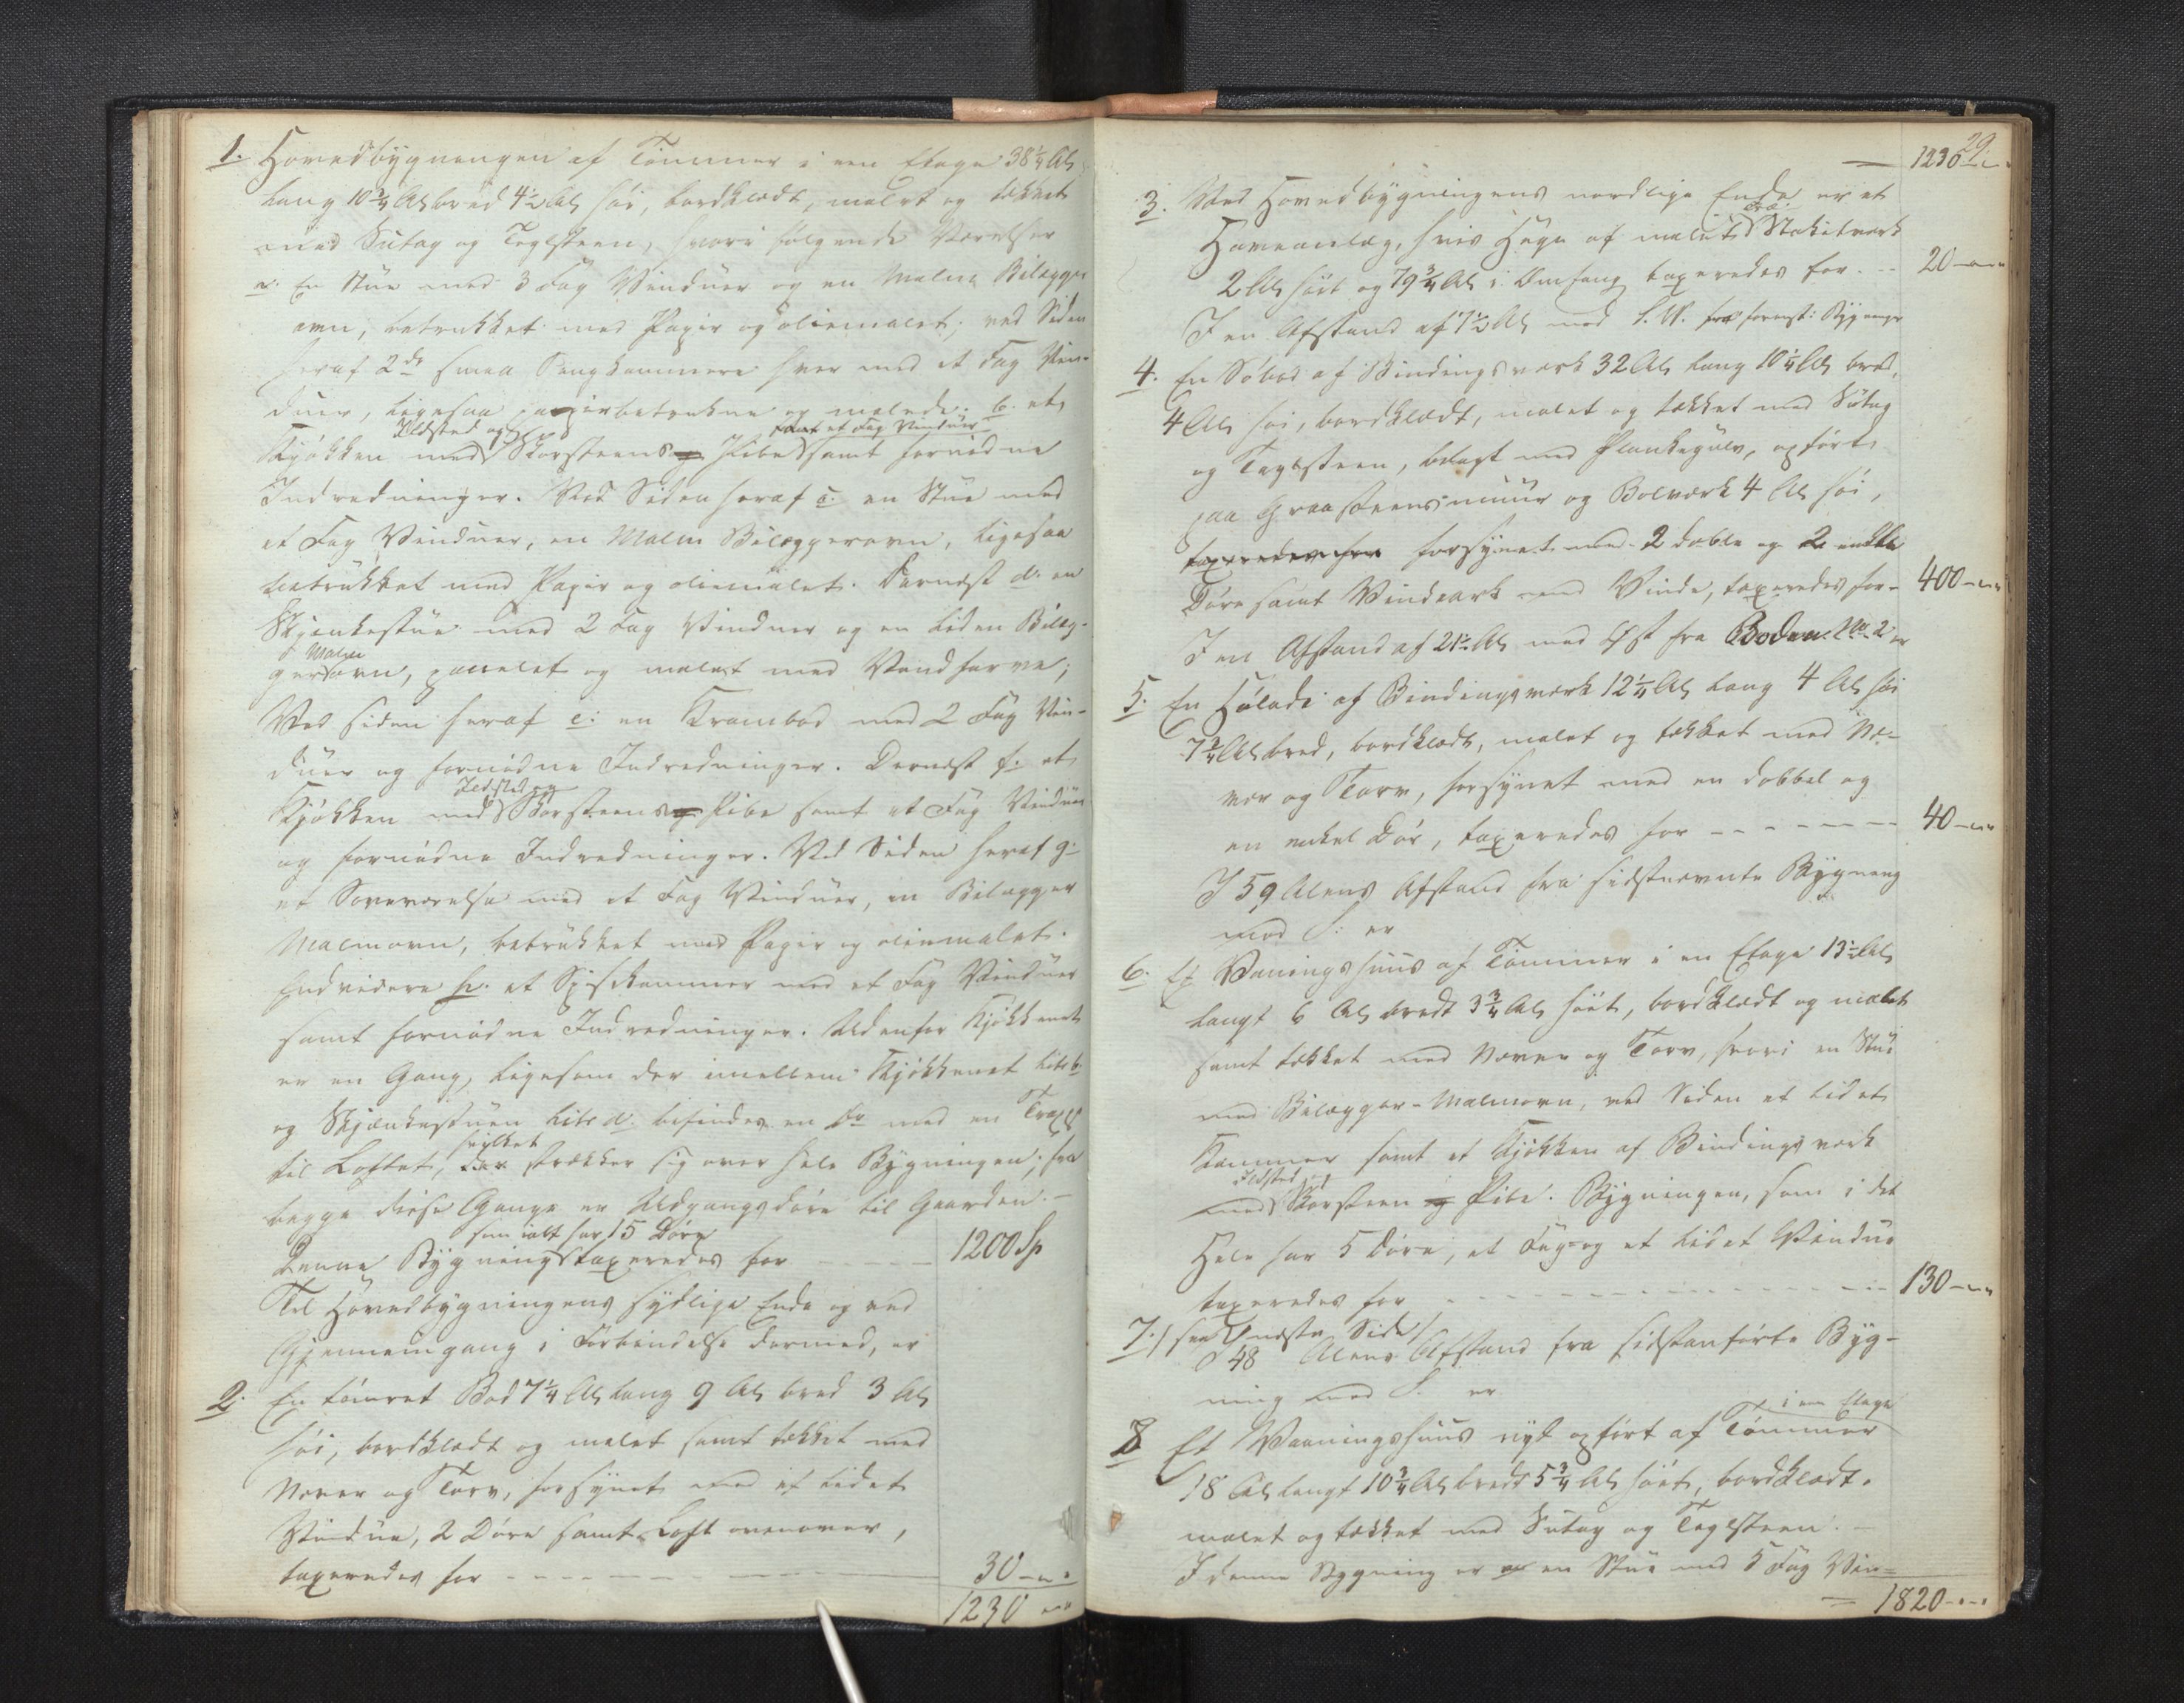 1. Hovedbygningen af Tømmer i een Etage 38 1/4 Al
lang 10 3/4 Al bred 4 1/2 Al høi, bordklædt, malet og tækket
med Sutag og Teglsteen, hvori følgende Værelser
a. En Stue med 3 Fag Vinduer og en Malm Bilægger
ovn, betrukket med Papir og oliemalet; ved Siden
heraf 2de smaa Sengkammere hver med et Fag Vin-
duer, ligesaa papirbetrukne og malede. b. et
Kjøkken med Ildsted og Skorsteens Pibe samt et Fag Vinduer samt fornødne
Indredninger. Ved Siden heraf c. en Stue med
et Fag Vinduer, en Malm Bilæggerovn, ligesaa
betrukket med Papir og oliemalet. Dernæst d. en
Skjænkestue med 2 Fag Vinduer og en liden Bilæg-
ger Malm ovn, panelet og malet med Vandfarve;
Ved siden heraf e: en Krambod med 2 Fag Vin-
duer og fornødne Indredninger. Dernæst f. et
Kjøkken med Ildsted og Skorsteens Pibe samt et Fag Vinduer
og fornødne Indredninger. Ved Siden heraf g:
et Soveværelse med et Fag Vinduer, en Bilægger
Malmovn, betrukket med Papir og oliemalet.
Endvidere h. et Spisekammer med et Fag Vinduer
samt fornødne Indredninger. Udenfor Kjøkkenet
er en Gang, ligesom der imellem Kjøkkenet Litr b.
og Skjænkestuen Litr d. befindes en do med en Trappe
til Loftet, hvilket strækker sig over hele Bygningen; fra
begge disse Gange er Udgangsdøre til Gaarden.-
Denne Bygning som ialt har 15 Døre taxeredes for - - - - 1200 Sp
Til Hovedbygningens sydlige Ende og ved
Gjennemgang i Forbindelse dermed, er
2. En tømret Bod 7 1/4 Al lang 9 Al bred 3 Al
høi, bordklædt og malet samt tækket med
Never og Torv, forsynet med et lidet
Vindue, 2 Døre samt Loft ovenover,
taxeredes for - - - - - 30 - "
1230 - "
29.
- 1230 - "
3. Ved Hovedbygningens nordlige Ende er et
Haveanlæg, hvis Hegn af malet Træ Stakitværk
2 Al høit og 79 3/4 Al i Omfang taxeredes for - - 20 - "
I en Afstand af 7 1/2 Al mod S.V. fra Bygninge
4. En Søbod af Bindingsværk 32 Al lang 10 1/4 Al bred,
4 Al høi, bordklædt, malet og tækket med Sutag
og Teglsteen, belagt med Plankegulv, opført
paa Graasteensmuur og Bolværk 4 Al høi,
taxeredes for forsynet med 2 doble og 2 enkle
Døre samt Vindeark med Vinde, taxeredes for - 400 - "
I en Afstand af 21 1/2 Al mod Øst fra Boden No 2 er
5. En Hølade af Bindingsværk 12 1/4 Al lang 4 Al høi
7 3/4 Al bred, bordklædt, malet og tækket med Ne-
ver og Torv, forsynet med en dobbel og
en enkel Dør, taxeredes for - - - - - 40 - "
I 59 Alens Afstand fra sidstnævnte Bygning
mod S: er
6. Et Vaaningshuus af Tømmer i en Etage 13 1/2 Al
langt 6 Al bredt 3 3/4 Al høit, bordklædt og malet
samt tækket med Never og Torv, hvori en Stue
med Bilægger-Malmovn, ved Siden et lidet
Kammer samt et Kjøkken af Bindingsværk
med Ildsted og Skorsteen Pibe. Bygningen, som i det
Hele har 5 Døre, et Fag og et lidet Vindue
taxeredes for - - - - - 130 - "
7. / see næste Side /
I 48 Alens Afstand fra sidstanførte Byg-
ning mod S. er
8 Et Vaaningshuus nyt opført af Tømmer i en Etage
18 Al langt 10 3/4 Al bredt 5 3/4 Al høit, bordklædt,
malet og tækket med Sutag og Teglsteen. -
I denne Bygning er a. en Stue med 5 Fag Vin-
- 1820 - "